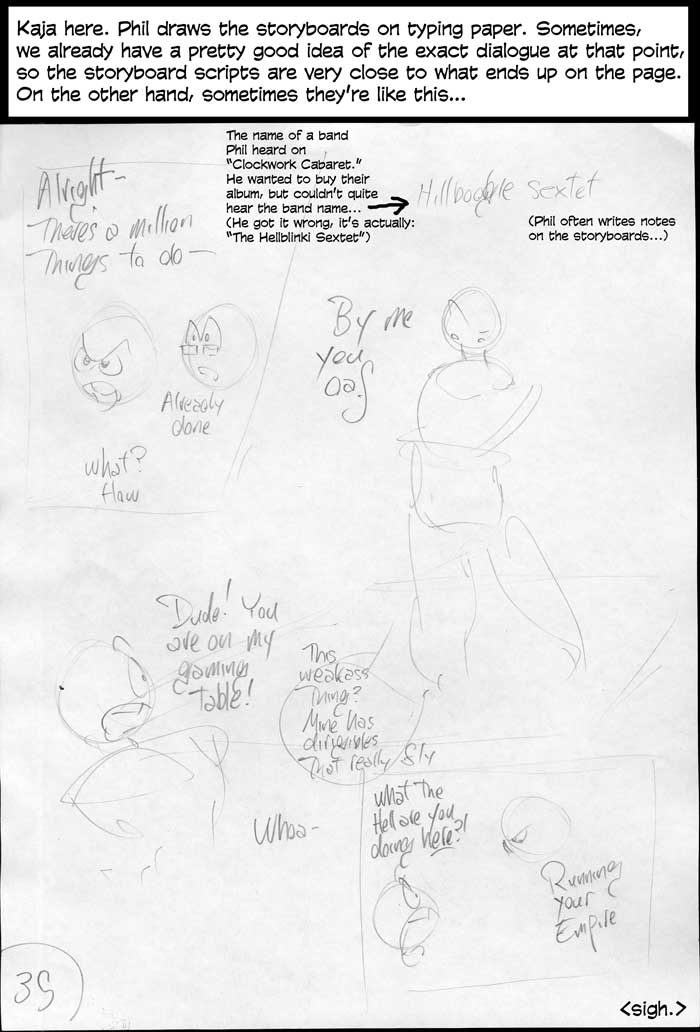 Kaja here. Phil draws the storyboards on typing paper. Sometimes,
we already have a pretty good idea of the exact dialogue at that point,
so the storyboard scripts are very close to what ends up on the page.
On the other hand, sometimes they're like this...
The name of a band
Phil heard on
"Clockwork Cabaret."
He wanted to buy their
album, but couldn't quite
hear the band name...
(He got it wrong, it's actually:
"The Hellblinki Sextet")
Sextet
(Phil often writes notes
on the storyboards...)
Alright-
There's a million
Things to do-
Already
done
What?
Haw
By me
you
oaf
Dude! You
are on my
gaming
table!
This
weakass
Thing?
Mine has
dirigibles
That really fly
Whoa-
What The
Hell are you
doing here?!
Running
your
Empire
39
<sigh.>